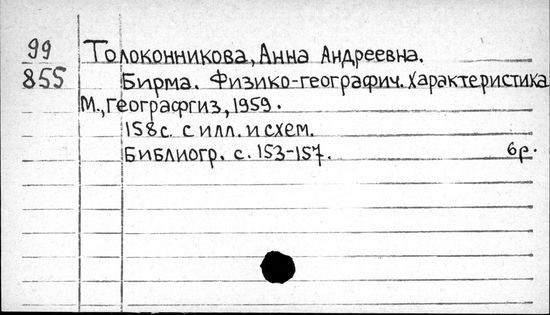 99
855
Толоконникова, Анна Андреевна.
Бирма. Физико-географич. характеристика
М., Географгиз, 1959.
158 с. с илл. и схем.
Библиогр. с. 153-157. 6р.